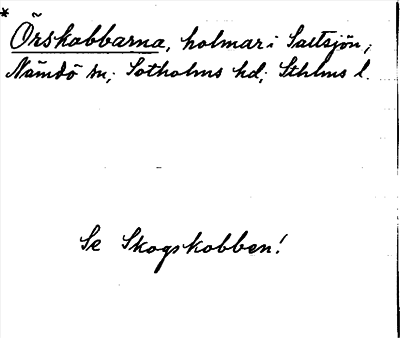 *
Örskobbarna, holmar i Saltsjön,
Nämdö sn; Sotholms hd; Sthlms l.
Se Skogskobben!